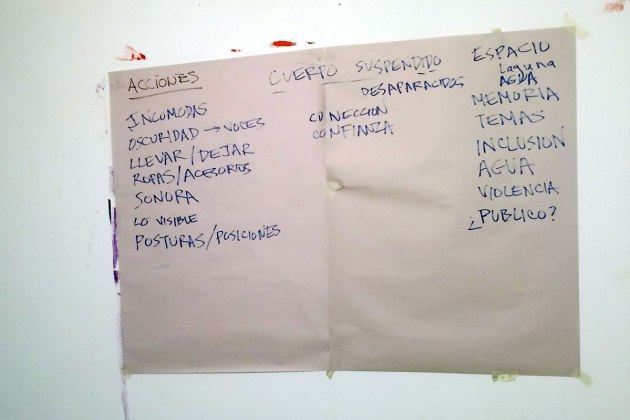 ACCIONES
INCOMODAS
OSCURIDAD → VOCES
LLEVAR/DEJAR
ROPAS/ACESORIOS
SONORA
LO VISIBLE
POSTURAS/POSICIONES
CUERPO SUSPENDIDO
DESAPARACIDOS
CONECCION
CONFIANZA
ESPACIO
Laguna
AGUA
MEMORIA
TEMAS
INCLUSION
AGUA
VIOLENCIA
¿PUBLICO?